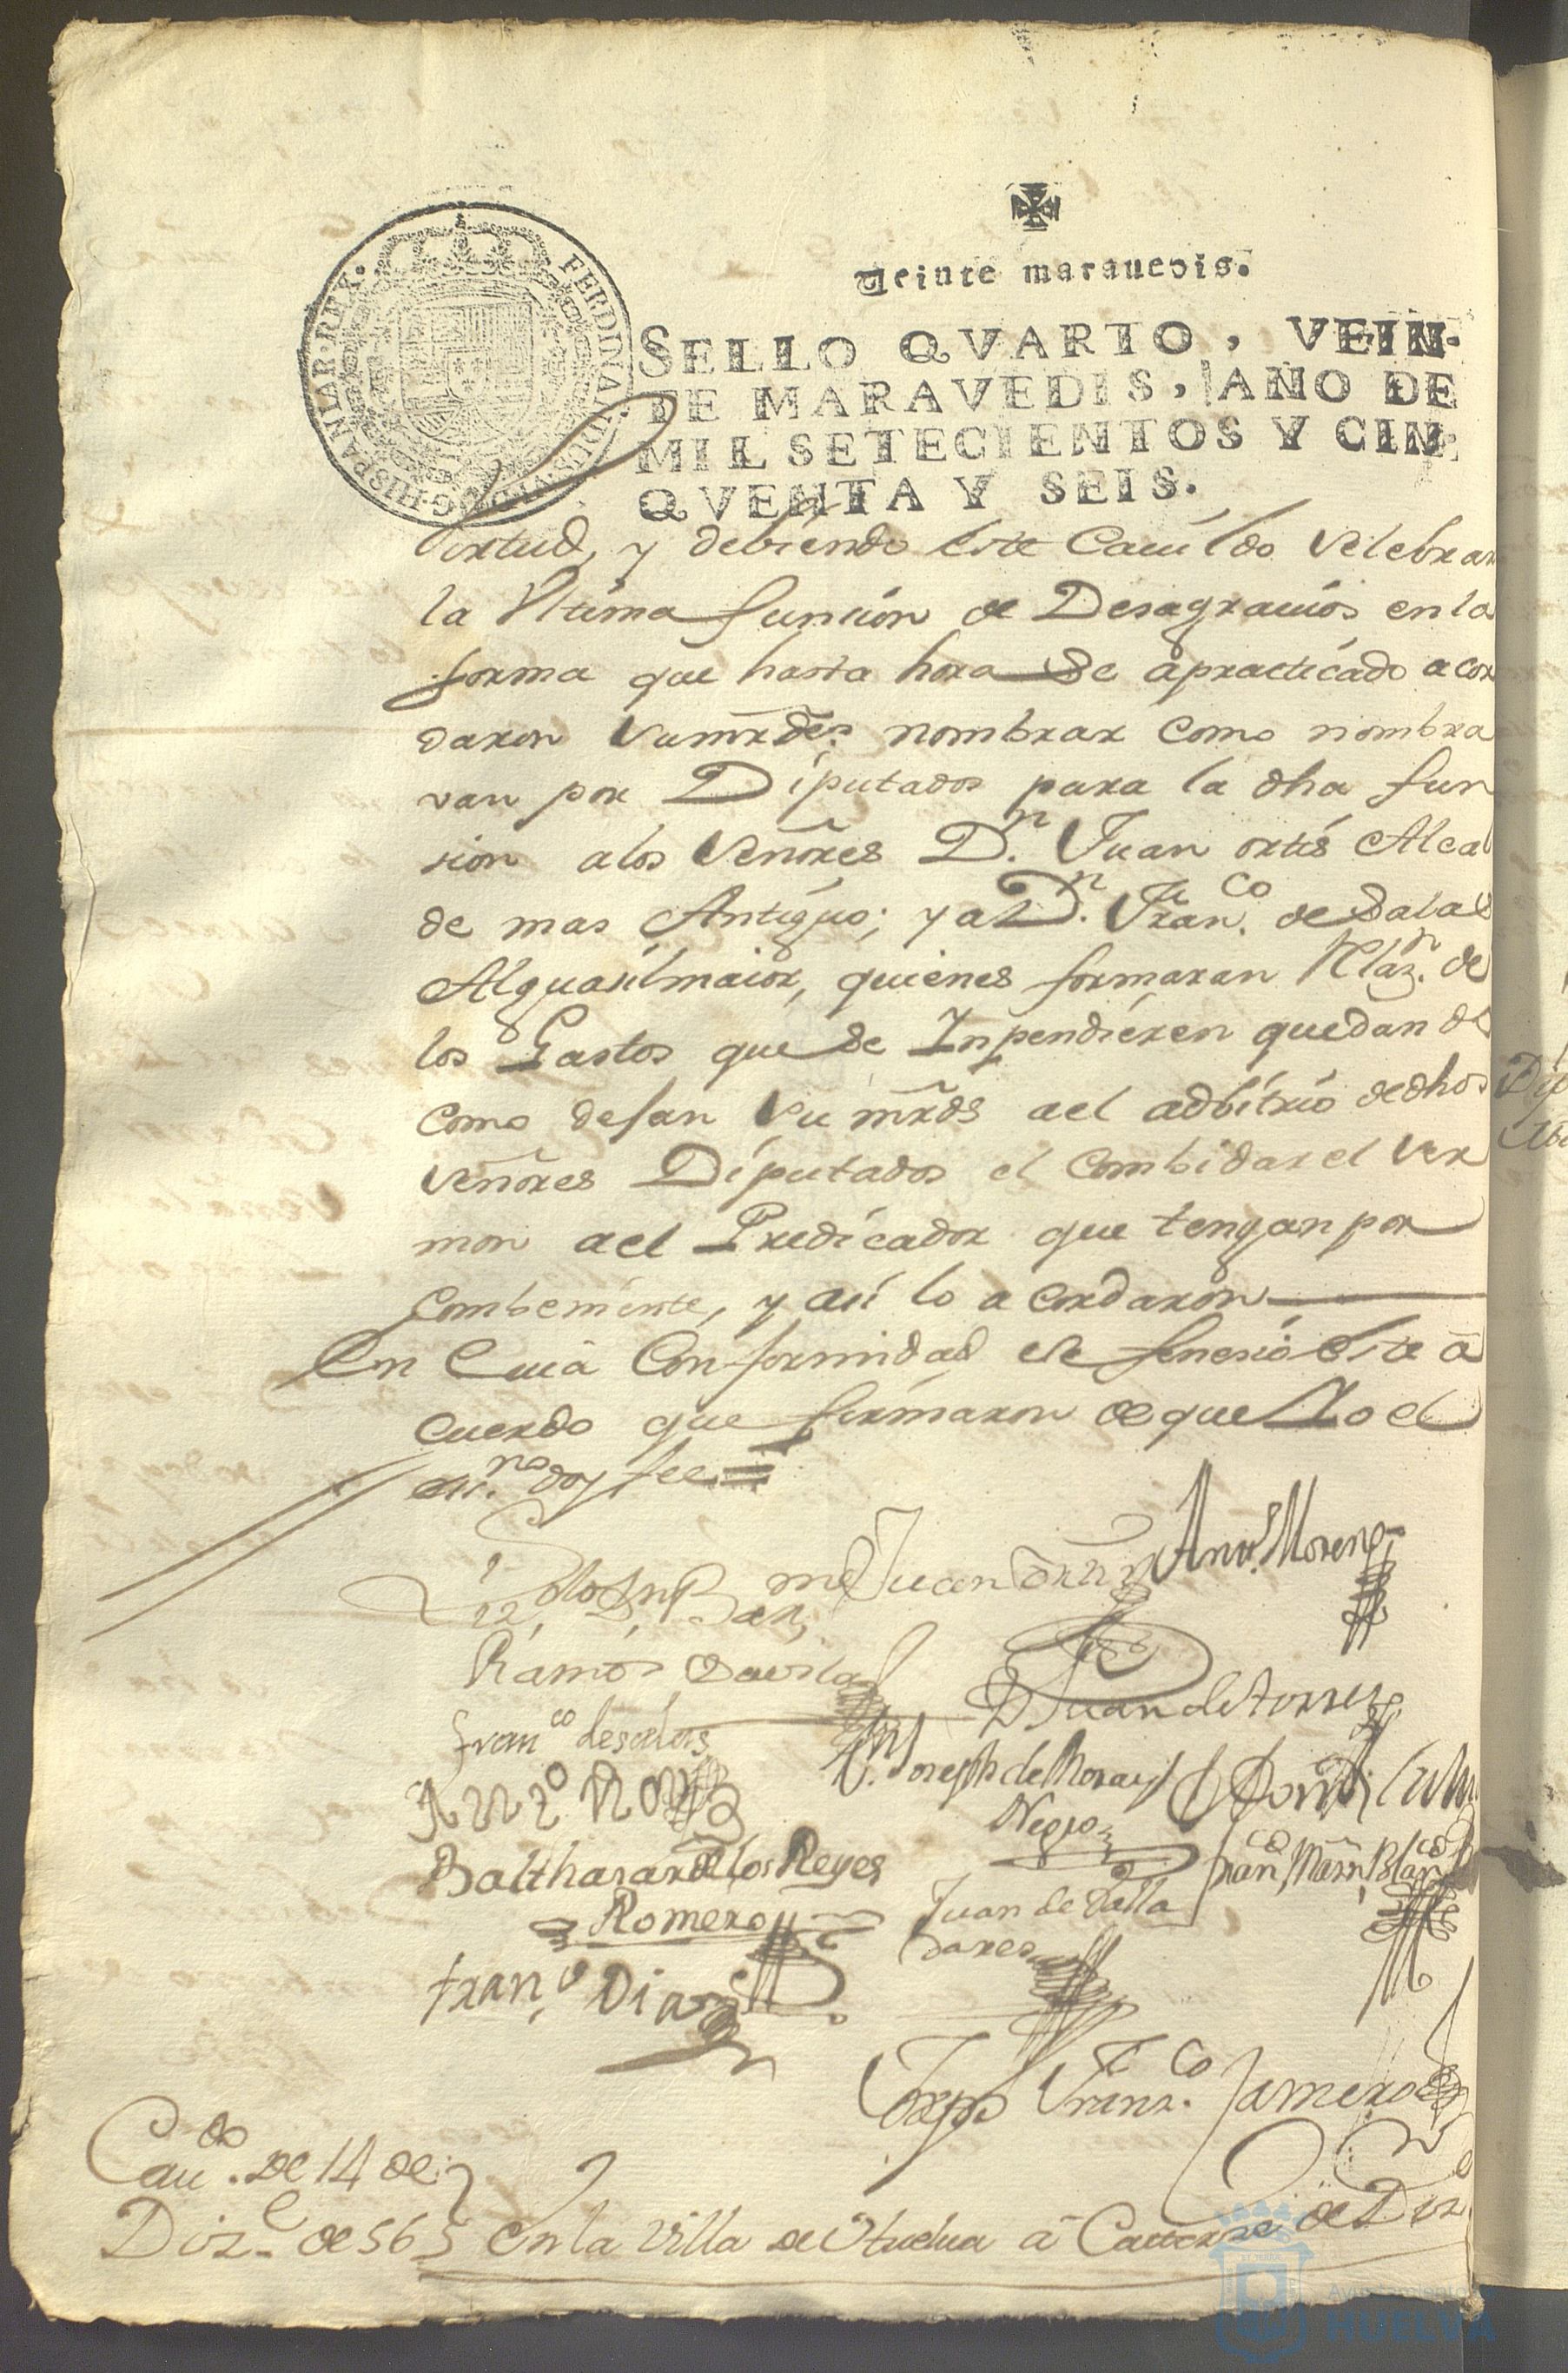 Veinte marauedis.
SELLO QVARTO, VEIN-
TE MARAVEDIS, AÑO DE
MIL SETECIENTOS Y CIN-
QVENTA Y SEIS.
FERDINANDUS VI D G HISPANIAR REX
Virtud, y debiendo este Cauildo Selebrar
la Vltima funsion de Desagrauios en la
forma que hasta hora Se apracticado acor
daron Sumrdes. nombrar como nombra
van por Diputados para la dha fun
sion alos Señores Dn. Juan ortis Alcal
de mas Antiguo; y a Dn. Franco. de Salas
Alguasilmaior, quienes formaran Rlazn. de
los Gastos que Se Inpendieren quedando
como desan Su mrds ael adbitrio dedhos
Señores Diputados el Combidar el Ser
mon ael Predicador que tengan por
Combeniente, y asi lo acordaron
En Cuia Conformidad se fenesio este a
cuerdo que firmaron de que Yo el
essno. doy fee =
Juan Ortiz
Anto. Moreno
Ramos Dauila
D Juan de Torres
franco desalas
Joseph de Mora y
Negro
Balthasar de los Reyes
Romero
Juan de Valla
dares
Franco Martin Blanco
Fran.o Diaz
Joseph Franco. Jamero
Cau.do de 14 de
Dize. de 56
en la Villa de Huelua â Catorze de Diz.e
Ayuntamiento
HUELVA